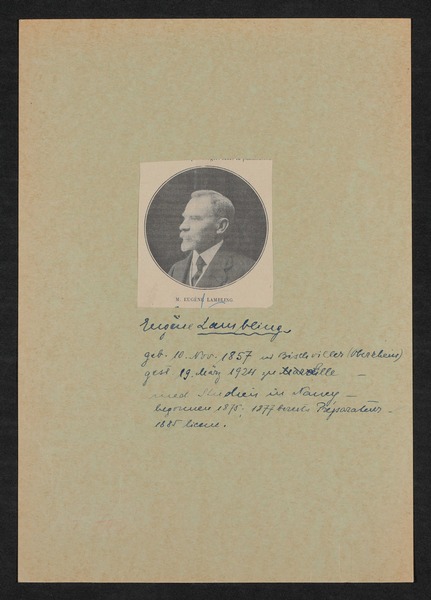 M. EUGÈNE LAMBLING.
Eugène Lambling
geb. 10. Nov. 1857 in Bischviller (Oberrhein)
gest 19. März 1924 zu Lille –
med Studien in Nancy –
begonnen 1875, 1877 bereits Préparateur –
1885 licenc.